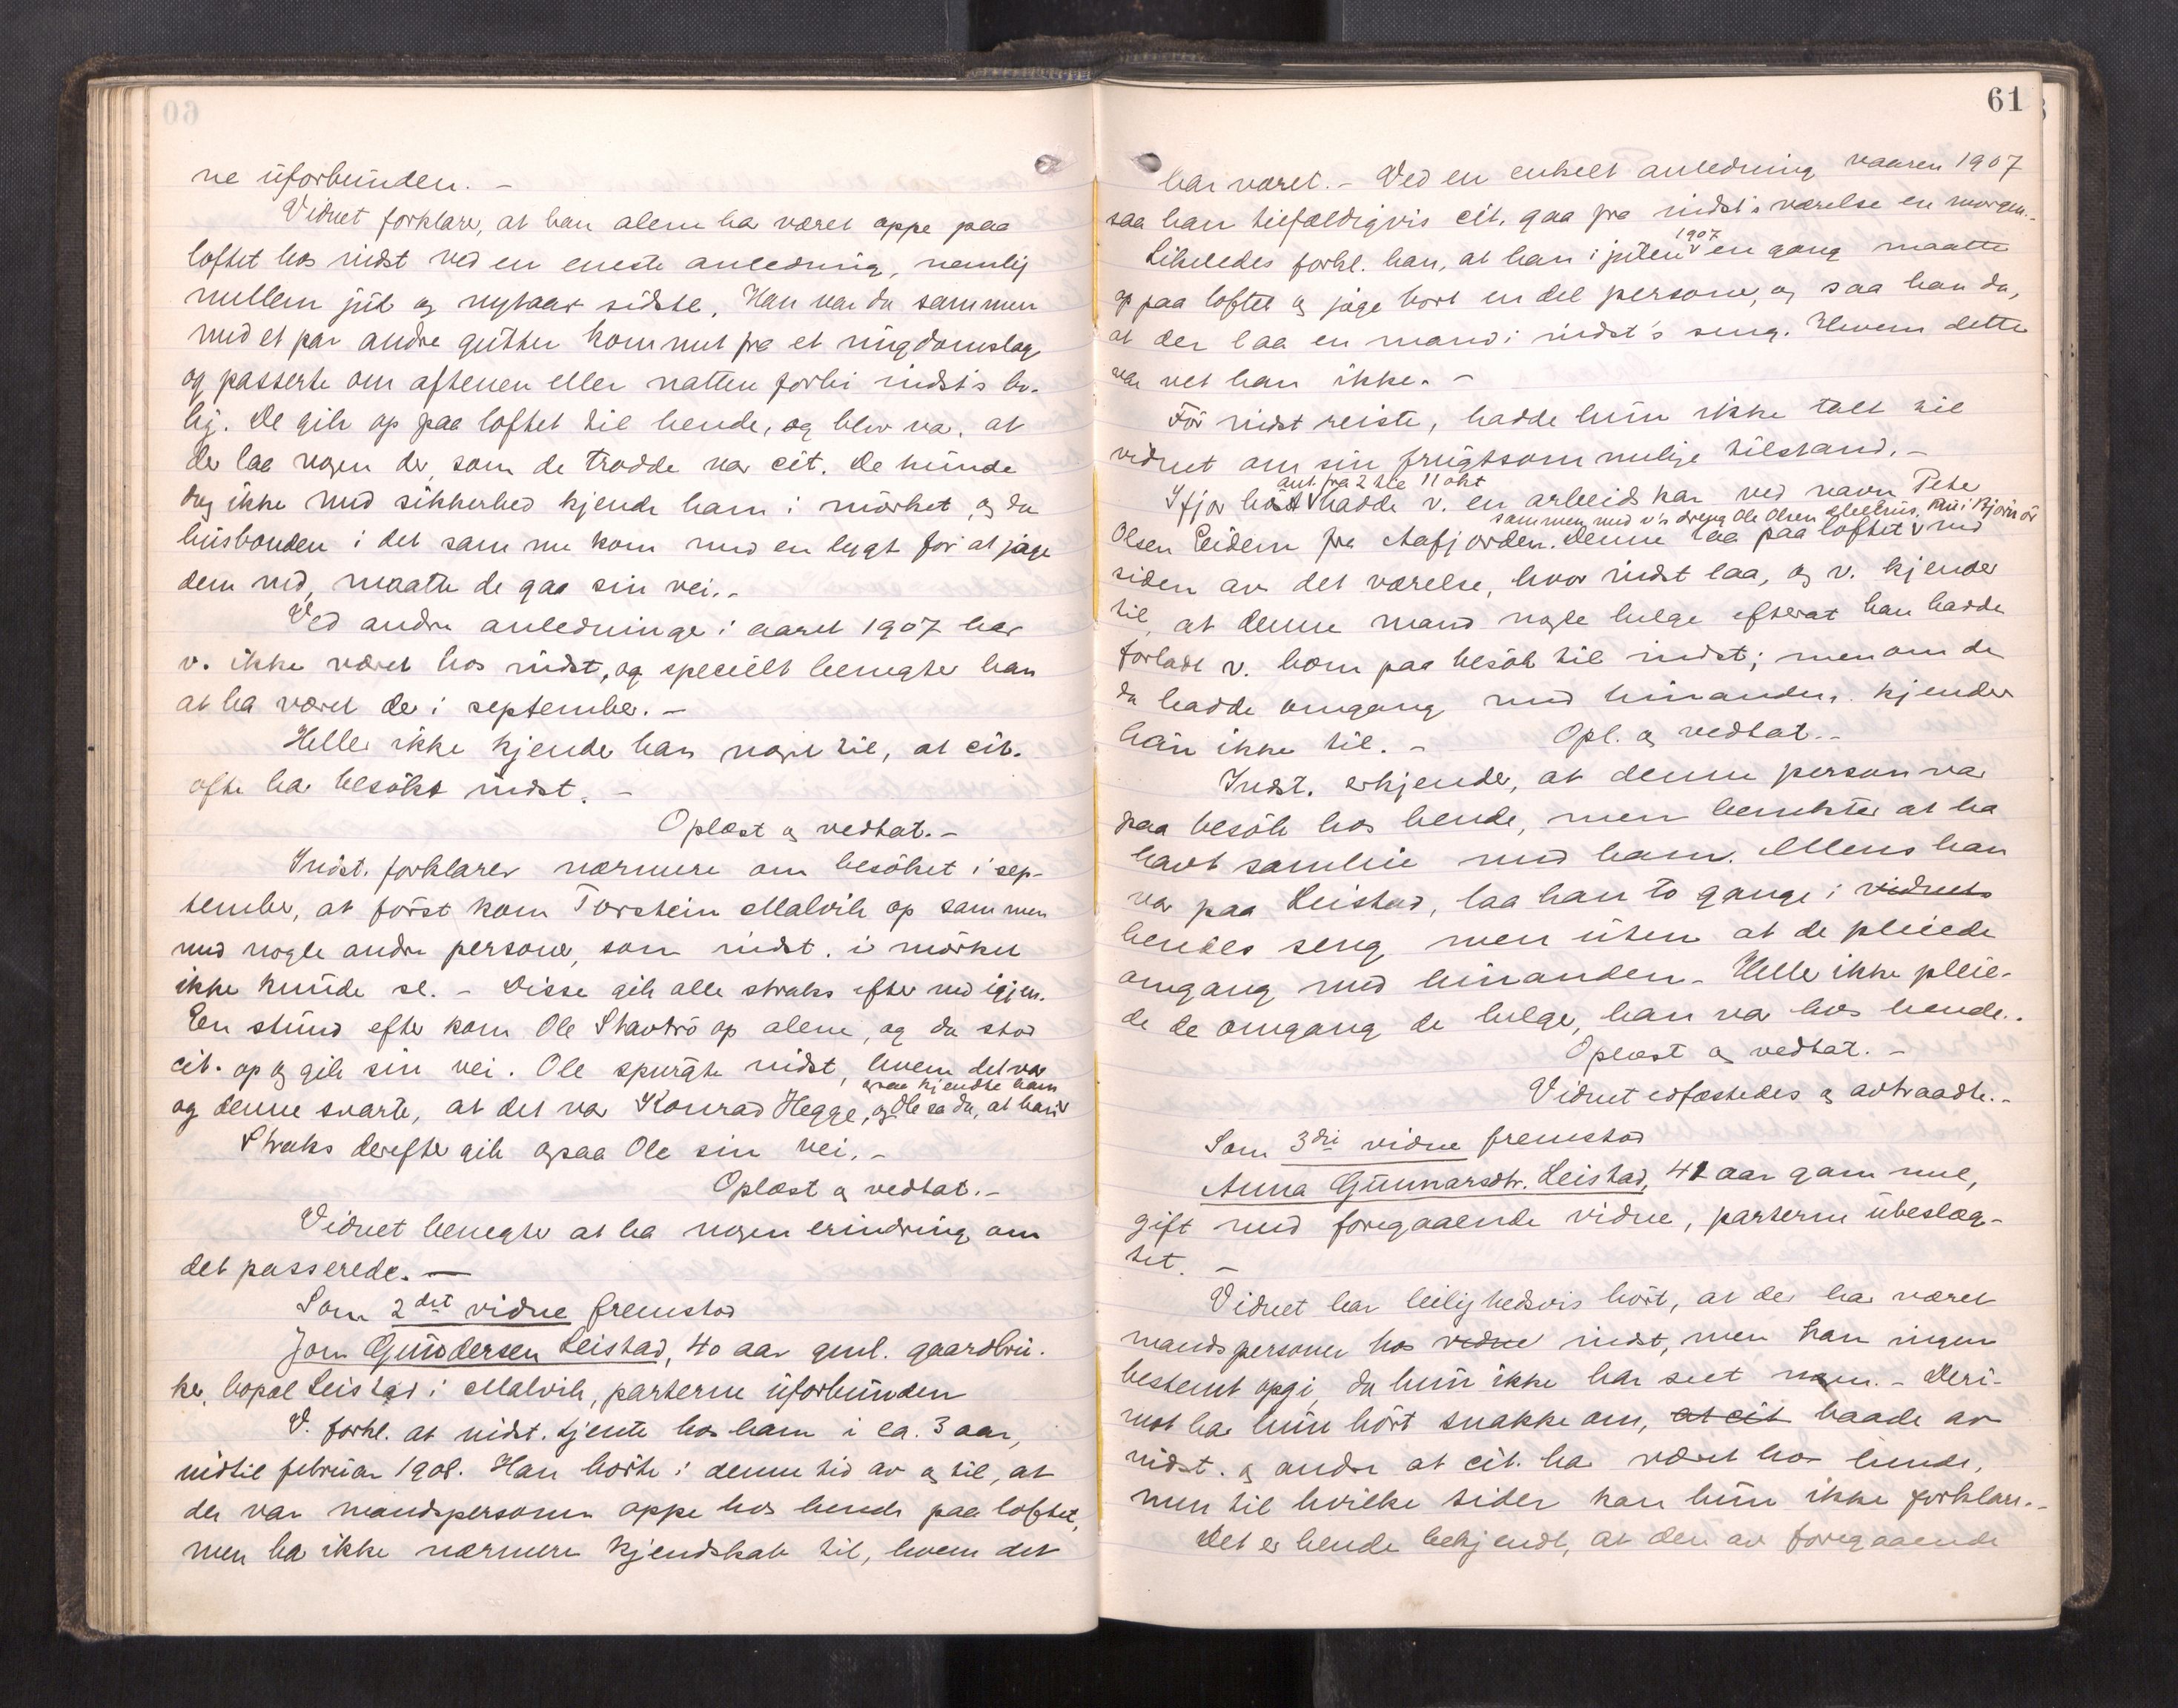 ne uforbunden. -
Vidnet forklarer, at han alene har været oppe paa
loftet hos indst ved en eneste anledning, nemlig
mellem jul og nytaar sidste. Han var da sammen
med et par andre gutter kommet fra et ungdomslag
og passerte om aftenen eller natten forbi indst's bo-
lig. De gik op paa loftet til hende, og blev va. at
der laa nogen der, som de trodde var cit. De kunde
dog ikke med sikkerhed kjende ham i mörket, og da
husbonden i det samme kom med en lygt for at jage
dem ned, maatte de gaa sin vei. -
Ved andre anledninger i aaret 1907 har
v. ikke været hos indst, og specielt benegter han
at ha været der i september. -
Heller ikke kjender han noget til, at cit.
ofte har besökt indst. -
Oplæst og vedtat. -
Indst. forklarer nærmere om besöket i sep-
tember, at först kom Torstein Malvik op sammen
med nogle andre personer, som indst. i mörket
ikke kunde se. - Disse gik alle straks efter ned igjen.
En stund efter kom Ole Stavdrö op alene, og da stod
cit. op og gik sin vei. Ole spurgte indst, hvem det var
og denne svarte, at det var Konrad Hegge, og Ole sa da, at han
ogsaa kjendte ham
Straks derefter gik ogsaa Ole sin vei. -
Oplæst og vedtat. -
Vidnet benegter at ha nogen erindring om
det passerede. -
Som 2det vidne fremstod
Jon Gundersen Leistad, 40 aar gml. gaardbru-
ker, bopæl Leistad i Malvik, parterne uforbunden
V. forkl. at indst. tjente hos ham i ca. 3 aar,
indtil februar 1908. Han hörte i denne tid av og til, at
der var mandspersoner oppe hos hende paa loftet,
men har ikke nærmere kjendskab til, hvem det
61
har været. - Ved en enkelt anledning vaaren 1907
saa han tilfældigvis cit. gaa fra indst's værelse en morgen. -
Likeledes forkl. han, at han i julen 1907 en gang maatte
op paa loftet og jage bort en del personer, og saa han da,
at der laa en mand i indst's seng. Hvem dette
var vet han ikke. -
För indst reiste, hadde hun ikke talt til
vidnet om sin frugtsommelige tilstand. -
ant. fra 2 til 11 okt
Ifjor höst hadde v. en arbeidskar ved navn Peter
sammen med v's dreng Ole Olsen
Olsen Eidem fra Aafjorden. Denne laa paa loftet ved
siden av det værelse, hvor indst laa, og v. kjender
til, at denne mand nogle helge efterat han hadde
forladt v. kom paa besök til indst; men om de
da hadde omgang med hinanden, kjender
han ikke til. - Opl. og vedtat. -
Indst. erkjender, at denne person var
paa besök hos hende, men benekter at ha
havt samleie med ham. Mens han
var paa Leistad, laa han to gange i vidnets
hendes seng men uten at de pleiede
omgang med hinanden. - Heller ikke pleie-
de de omgang de helge, han var hos hende. -
Oplæst og vedtat. -
Vidnet edfæstedes og avtraadte. -
Som 3die vidne fremstod
Anna Gunnarsdtr. Leistad, 41 aar gammel,
gift med foregaaende vidne, parterne ubeslæg-
tet. -
Vidnet har leilighedsvis hört, at der har været
mandspersoner hos vidne indst, men kan ingen
bestemt opgi, da hun ikke har seet nogen. - Deri-
mot har hun hört snakke om, at cit baade av
indst. og andre at cit. har været hos hende,
men til hvilke tider kan hun ikke forklare. -
Det er hende bekjendt, at den av foregaaende